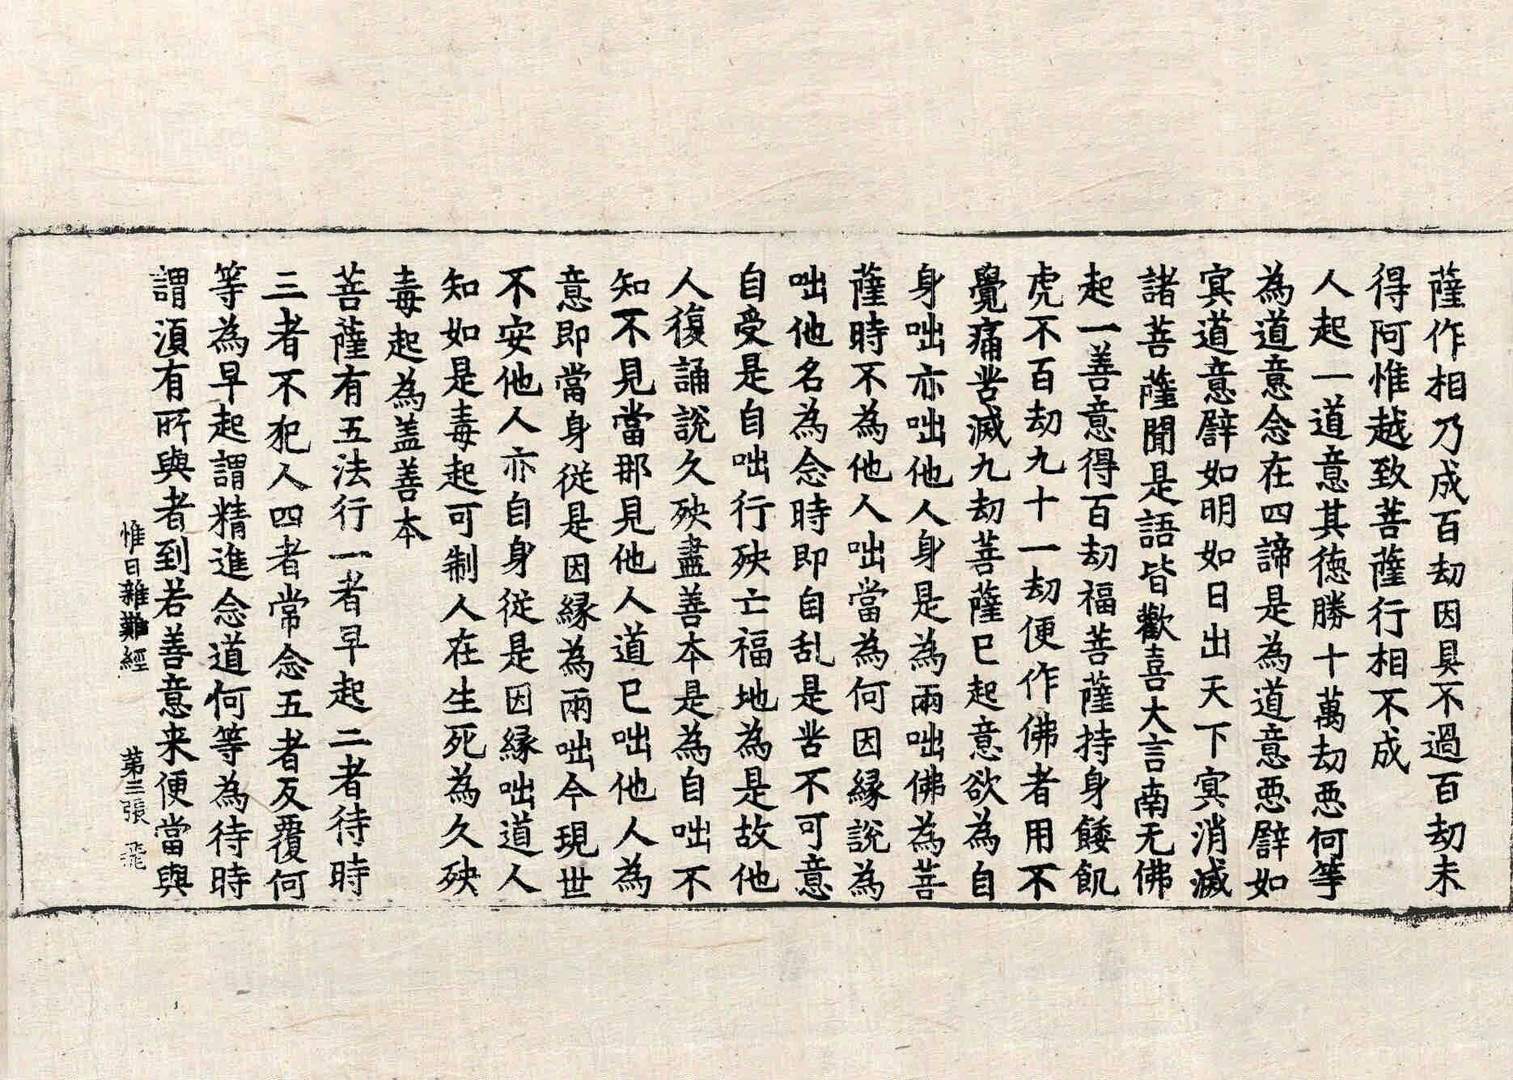 薩作相乃成百劫因具不過百劫未
得阿惟越致菩薩行相不成
人起一道意其德勝十萬劫惡何等
為道意念在四諦是為道意惡譬如
冥道意譬如明如日出天下冥消滅
諸菩薩聞是語皆歡喜大言南无佛
起一善意得百劫福菩薩持身餧飢
虎不百劫九十一劫便作佛者用不
覺痛苦滅九劫菩薩已起意欲為自
身咄亦咄他人身是為兩咄佛為菩
薩時不為他人咄當為何因緣說為
咄他名為念時即自乱是苦不可意
自受是自咄行殃亡福地為是故他
人復誦說久殃盡善本是為自咄不
知不見當那見他人道已咄他人為
意即當身從是因緣為兩咄今現世
不安他人亦自身從是因緣咄道人
知如是毒起可制人在生死為久殃
毒起為盖善本
菩薩有五法行一者早起二者待時
三者不犯人四者常念五者反覆何
等為早起謂精進念道何等為待時
謂湏有所與者到若善意来便當與
惟日雜難經　第三張　飛